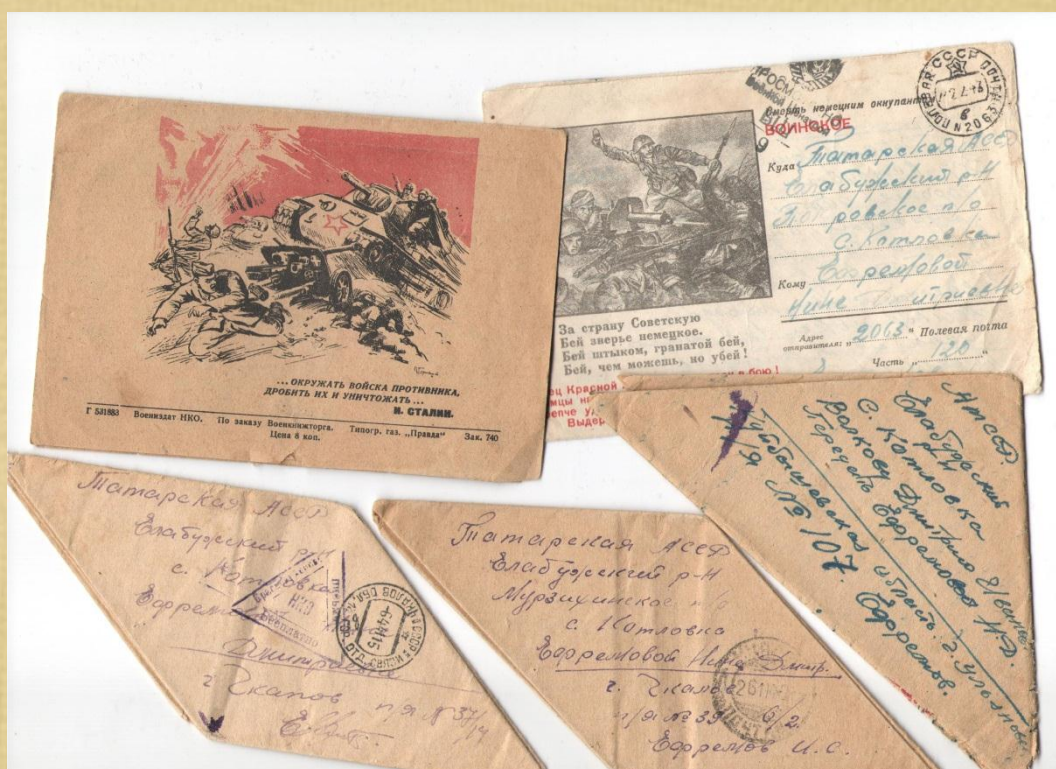 ... ОКРУЖАТЬ ВОЙСКА ПРОТИВНИКА,
ДРОБИТЬ ИХ И УНИЧТОЖАТЬ ...
И. СТАЛИН.
Г 531883 Воениздат НКО. По заказу Военкнижторга. Типогр. газ. „Правда" Зак. 740
Цена 6 коп.
Смерть немецким оккупант
ВОИНСКОЕ
ПОЛЕВАЯ ПОЧТА СССР
N 2063
Куда Татарская АССР
Елабужский р-н
п/о
с. Котловка
Кому Ефремовой
Нине Дмитриевне
Адрес отправителя: "2063" Полевая почта
Часть "120"
За страну Советскую
Бей зверье немецкое.
Бей штыком, гранатой бей,
Бей, чем можешь, но убей!
в бою!
ец Красной
Выдер
Татарская АССР
Елабужский р-н
с. Котловка
НКО
Дмитр
г Чкалов
п/я № 37/14
Татарская АССР
Елабужский р-н
Мурзихинское п/о
с. Котловка
Ефремовой Нине Дмитр.
г. Чкалов
п/я № 39 6/2
Ефремов И.С.
АТССР.
Елабужский
р-н
с. Котловка
Волкову Дмитрию
Передать Ефремовой Н.Д.
Куйбышевская область. г. Ульяновск
п/я № 107.
Ефремов.